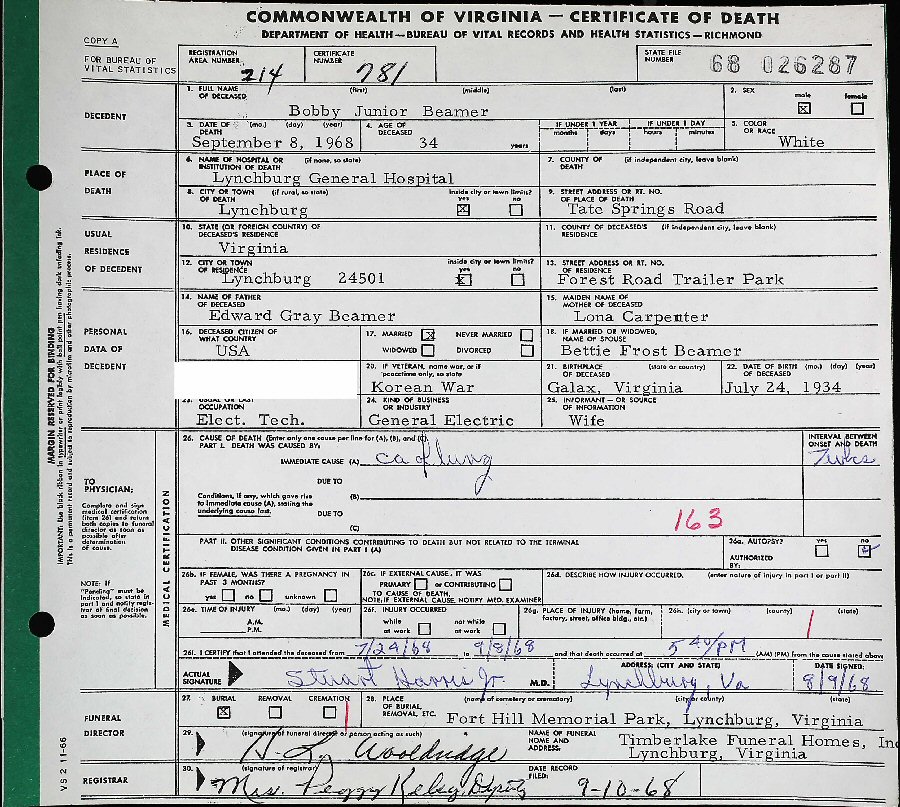 COMMONWEALTH OF VIRGINIA — CERTIFICATE OF DEATH
DEPARTMENT OF HEALTH—BUREAU OF VITAL RECORDS AND HEALTH STATISTICS—RICHMOND
COPY A
FOR BUREAU OF VITAL STATISTICS
REGISTRATION AREA NUMBER 214
CERTIFICATE NUMBER 781
STATE FILE NUMBER 68 026287
DECEDENT
1. FULL NAME OF DECEASED (first) (middle) (last)
Bobby Junior Beamer
2. SEX male ☒ female ☐
3. DATE OF DEATH (mo.) (day) (year)
September 8, 1968
4. AGE OF DECEASED
34 years
IF UNDER 1 YEAR months days
IF UNDER 1 DAY hours minutes
5. COLOR OR RACE
White
PLACE OF DEATH
6. NAME OF HOSPITAL OR INSTITUTION OF DEATH (if none, so state)
Lynchburg General Hospital
7. COUNTY OF DEATH (if independent city, leave blank)
8. CITY OR TOWN OF DEATH (if rural, so state)
Lynchburg
inside city or town limits? yes ☒ no ☐
9. STREET ADDRESS OR RT. NO. OF PLACE OF DEATH
Tate Springs Road
USUAL RESIDENCE OF DECEDENT
10. STATE (OR FOREIGN COUNTRY) OF DECEASED'S RESIDENCE
Virginia
11. COUNTY OF DECEASED'S RESIDENCE (if independent city, leave blank)
12. CITY OR TOWN OF RESIDENCE
Lynchburg 24501
inside city or town limits? yes ☒ no ☐
13. STREET ADDRESS OR RT. NO. OF RESIDENCE
Forest Road Trailer Park
PERSONAL DATA OF DECEDENT
14. NAME OF FATHER OF DECEASED
Edward Gray Beamer
15. MAIDEN NAME OF MOTHER OF DECEASED
Lona Carpenter
16. DECEASED CITIZEN OF WHAT COUNTRY
USA
17. MARRIED ☒ NEVER MARRIED ☐
WIDOWED ☐ DIVORCED ☐
18. IF MARRIED OR WIDOWED, NAME OF SPOUSE
Bettie Frost Beamer
20. IF VETERAN, name war, or if peacetime only, so state
Korean War
21. BIRTHPLACE OF DECEASED (state or country)
Galax, Virginia
22. DATE OF BIRTH (mo.) (day) (year) OF DECEASED
July 24, 1934
23. USUAL OR LAST OCCUPATION
Elect. Tech.
24. KIND OF BUSINESS OR INDUSTRY
General Electric
25. INFORMANT — OR SOURCE OF INFORMATION
Wife
MARGIN RESERVED FOR BINDING
IMPORTANT: Use black ribbon in typewriter or print legibly with ball point pen
This is a permanent record and subject to reproduction by microfilm and other photographic process.
TO PHYSICIAN:
Complete and sign medical certification (item 26) and return both copies to funeral director as soon as possible after determination of cause.
NOTE: If "Pending" must be indicated, so state in part I and notify registrar of final decision as soon as possible.
MEDICAL CERTIFICATION
26. CAUSE OF DEATH (Enter only one cause per line for (A), (B), and (C).
PART I. DEATH WAS CAUSED BY:
INTERVAL BETWEEN ONSET AND DEATH
IMMEDIATE CAUSE (A) ca of lung
7 wks
DUE TO
Conditions, if any, which gave rise to immediate cause (A), stating the underlying cause last.
(B)
DUE TO
(C)
163
PART II. OTHER SIGNIFICANT CONDITIONS CONTRIBUTING TO DEATH BUT NOT RELATED TO THE TERMINAL DISEASE CONDITION GIVEN IN PART I (A)
26a. AUTOPSY? yes ☐ no ☒
AUTHORIZED BY:
26b. IF FEMALE, WAS THERE A PREGNANCY IN PAST 3 MONTHS?
yes ☐ no ☐ unknown ☐
26c. IF EXTERNAL CAUSE, IT WAS
PRIMARY ☐ or CONTRIBUTING ☐
TO CAUSE OF DEATH.
NOTE: IF EXTERNAL CAUSE, NOTIFY MED. EXAMINER
26d. DESCRIBE HOW INJURY OCCURRED. (enter nature of injury in part I or part II)
26e. TIME OF INJURY (mo.) (day) (year)
A.M.
P.M.
26f. INJURY OCCURRED
while at work ☐ not while at work ☐
26g. PLACE OF INJURY (home, farm, factory, street, office bldg., etc.)
26h. (city or town) (county) (state)
26i. I CERTIFY that I attended the deceased from 7/24/68 to 9/8/68 and that death occurred at 5 40/PM (AM) (PM) from the cause stated above
ACTUAL SIGNATURE
Stuart Harris Jr. M.D.
ADDRESS: (CITY AND STATE)
Lynchburg, Va
DATE SIGNED:
8/9/68
FUNERAL DIRECTOR
27. BURIAL ☒ REMOVAL ☐ CREMATION ☐
28. PLACE OF BURIAL, REMOVAL, ETC. (name of cemetery or crematory) (city or county) (state)
Fort Hill Memorial Park, Lynchburg, Virginia
29. (signature of funeral director or person acting as such)
H. L. Wooldridge
NAME OF FUNERAL HOME AND ADDRESS:
Timberlake Funeral Homes, Inc
Lynchburg, Virginia
REGISTRAR
30. (signature of registrar)
Mrs. Peggy Kelsey, Deputy
DATE RECORD FILED:
9-10-68
VS 2 11-66